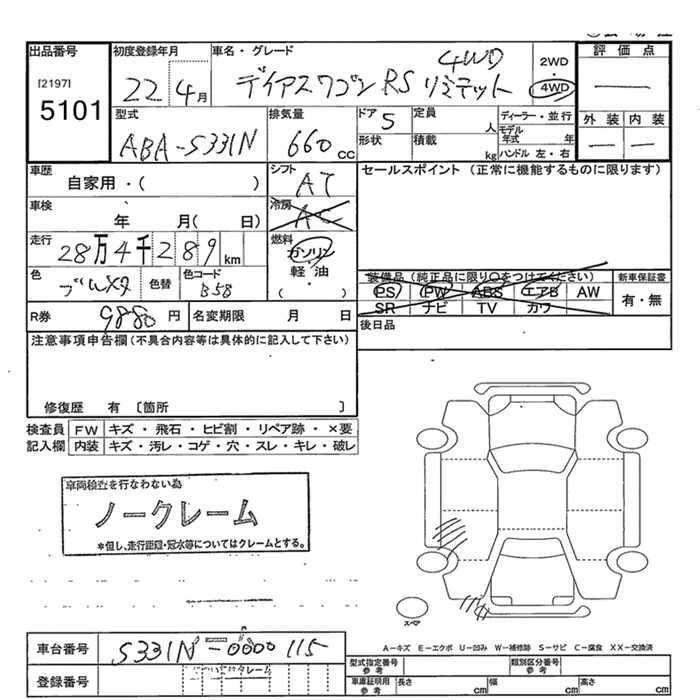 出品番号
[2197]
5101
初度登録年月
22 4月
車名・グレード
4WD
デイアスワゴン RS リミテット
2WD
・
4WD
評価点
—
外装 内装
— —
型式
ABA-S331N
排気量
660 cc
ドア 5
形状
定員 人
積載 kg
ディーラー・並行
モデル年式 年
ハンドル 左・右
車歴
自家用・( )
シフト
AT
セールスポイント (正常に機能するものに限ります)
車検
年 月( 日)
冷房
AC
走行
28万4千289km
燃料
ガソリン
・
軽・油
( )
色
ブルメタ
色替
色コード
B58
装備品(純正品に限り○をつけてください)
PS PW ABS エアB AW
SR ナビ TV カワ
新車保証書
有・無
R券 9880円
名変期限 月 日
後日品
注意事項申告欄(不具合内容等は具体的に記入して下さい)
修復歴 有 〔箇所 〕
検査員 FW キズ・飛石・ヒビ割・リペア跡・×要
記入欄 内装 キズ・汚レ・コゲ・穴・スレ・キレ・破レ
車両検査を行なわない為
ノークレーム
*但し、走行距離・冠水等についてはクレームとする。
スペア
A−キズ E−エクボ U−凹み W−補修跡 S−サビ C−腐食 XX−交換済
車台番号 S331N-0000115
登録番号
型式指定番号 参考
類別区分番号 参考
車庫証明用 参考 長さ cm 幅 cm 高さ cm